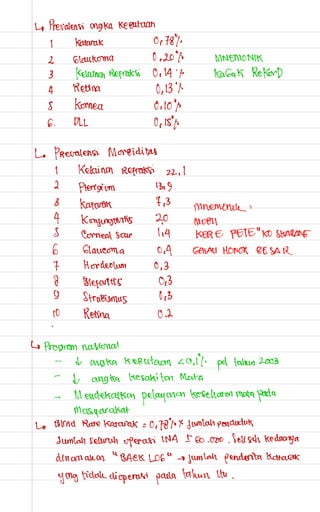 ↳ Prevalensi angka kebutaan
1 Katarak 0,78%
2 Glaukoma 0,20% MNEMONIK
3 Kelainan Refraksi 0,14% KaGaK ReKorD
4 Retina 0,13%
5 Kornea 0,10%
6. DLL 0,15%
↳ Prevalensi Morbiditas
1 Kelainan Refraksi 22,1
2 Pterigium 13,9
3 Katarak 7,3 mnemonik :
4 Konjungtivitis 2,0
5 Corneal Scar 1,4 KERE PETE"
6 Glaucoma 0,4 RESAR
7 Hordeolum 0,3
8 Blefaritis 0,3
9 Strabismus 0,3
10 Retina 0.2
↳ Program nasional
- ↓ angka kebutaan <0,1% pd tahun 2003
- ↓ angka kesakitan Mata
- Mendekatkan pelayanan kesehatan mata pada
masyarakat
↳ Blind Rate Katarak = 0,78% x jumlah penduduk
Jumlah seluruh operasi INA ± 80.000. Selisih keduanya
dinamakan "BACK LOG" → jumlah penderita katarak
yang tidak dioperasi pada tahun itu.